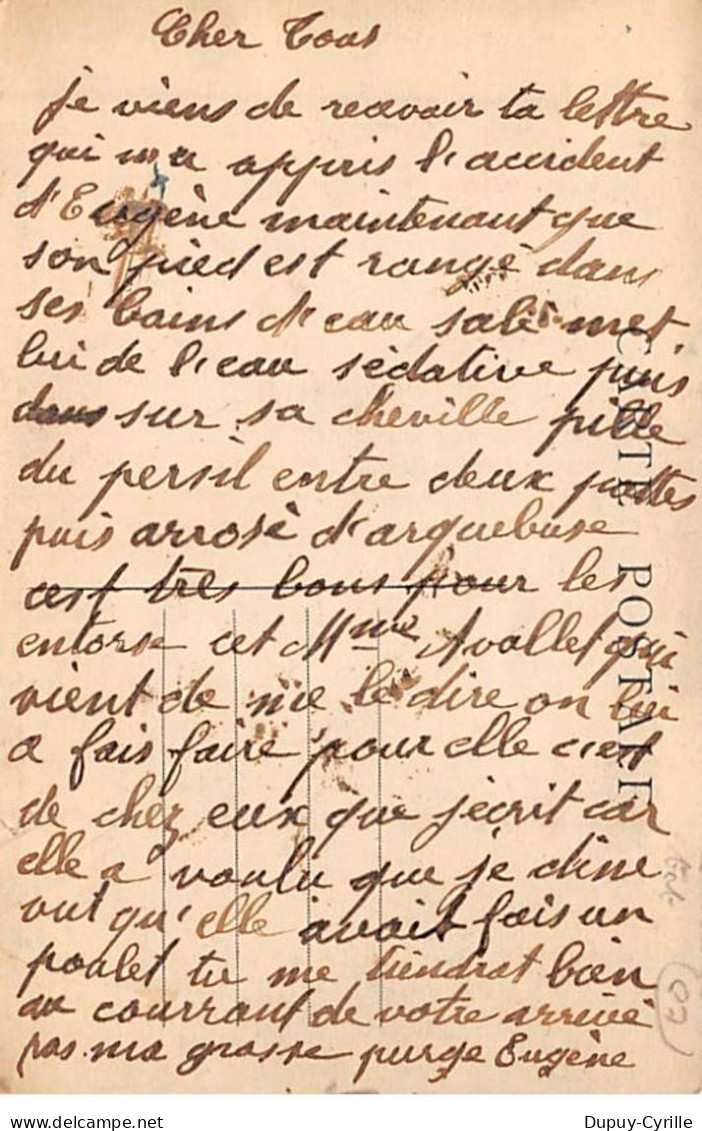 Cher Tous
je viens de recevoir ta lettre
qui m'a appris l'accident
d'Eugène maintenant que
son pied est rangé dans
ses bains d'eau salé met
lui de l'eau sédative puis
sur sa cheville pille
du persil entre deux pattes
puis arrosé d'arquebuse
cest très bons pour les
entorse cet Mme Avollet qui
vient de me le dire on lui
a fais faire pour elle c'est
de chez eux que j'ecrit car
elle a voulu que je dine
vut qu'elle avait fais un
poulet tu me tiendrat bien
au courrant de votre arrivé
pas ma grosse purge Eugène
CARTE POSTALE
07
delcampe.net
Dupuy-Cyrille